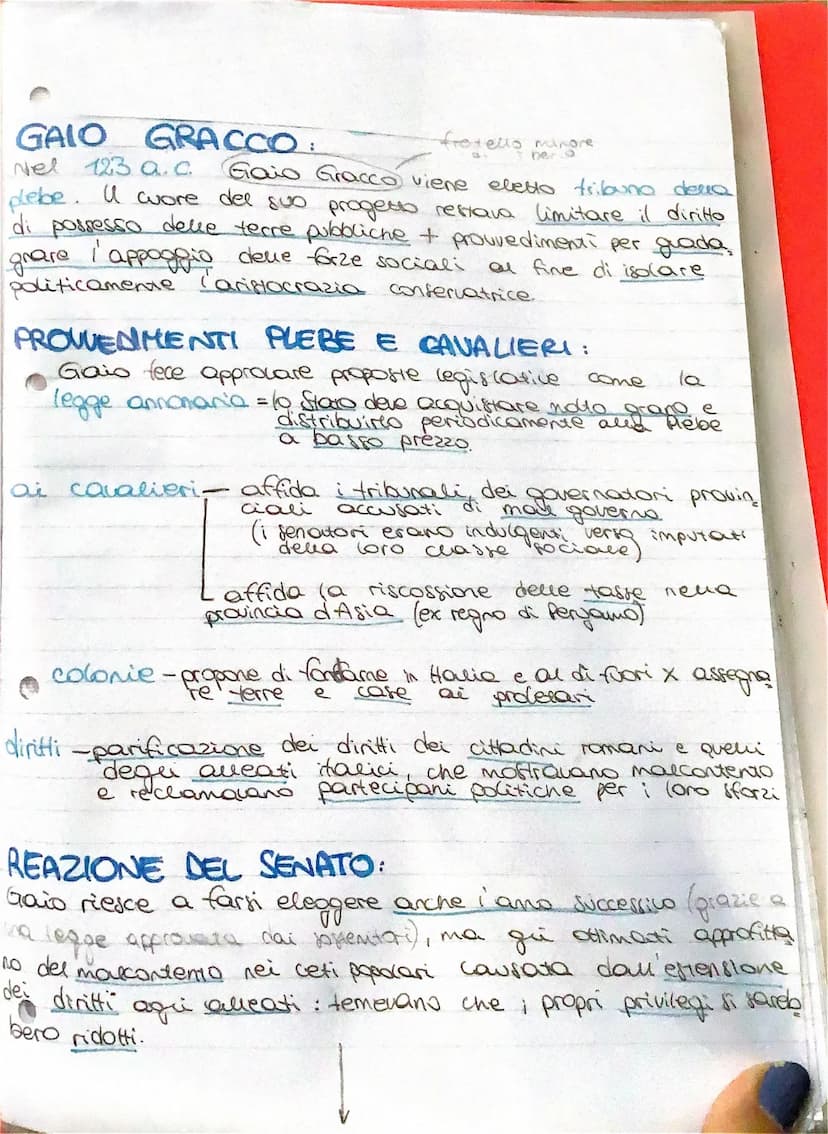 GAIO GRACCO:
fratello minore
Nel 123 a.C. Gaio Gracco viene eletto tribuno della
plebe. Il cuore del suo progetto restava limitare il diritto
di possesso delle terre pubbliche + provvedimenti per guada
gnare l'appoggio delle forze sociali al fine di isolare
politicamente l'aristocrazia conservatrice.
PROVVEDIMENTI PLEBE E CAVALIERI:
Gaio fece approvare proposte legislative come la
legge annonaria = lo Stato deve acquistare molto grano e
distribuirlo periodicamente alla plebe
a basso prezzo.
ai cavalieri - affida i tribunali, dei governatori provin
ciali accusati di mal governo
(i senatori erano indulgenti verso imputati
della loro classe sociale)
affida la riscossione delle tasse nella
provincia d'Asia (ex regno di Pergamo)
colonie - propone di fondarne in Italia e al di fuori x assegna
re terre e case ai proletari
diritti - parificazione dei diritti dei cittadini romani e quelli
degli alleati italici, che mostravano malcontento
e reclamavano partecipani politiche per i loro sforzi
REAZIONE DEL SENATO:
Gaio riesce a farsi eleggere anche l'anno successivo (grazie a
na legge approvata dai sostenitori), ma gli ottimati approfitta
no del malcontento nei ceti popolari causata dall'estensione
dei diritti agli alleati: temevano che i propri privilegi si sareb
bero ridotti.